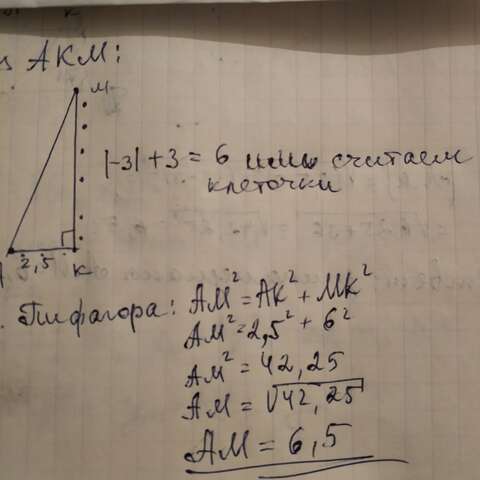 АКМ:
М
|-3| + 3 = 6 или считаем
клеточки
2,5
К
Пифагора: АМ² = АК² + МК²
АМ² = 2,5² + 6²
АМ² = 42,25
АМ = √42,25
АМ = 6,5